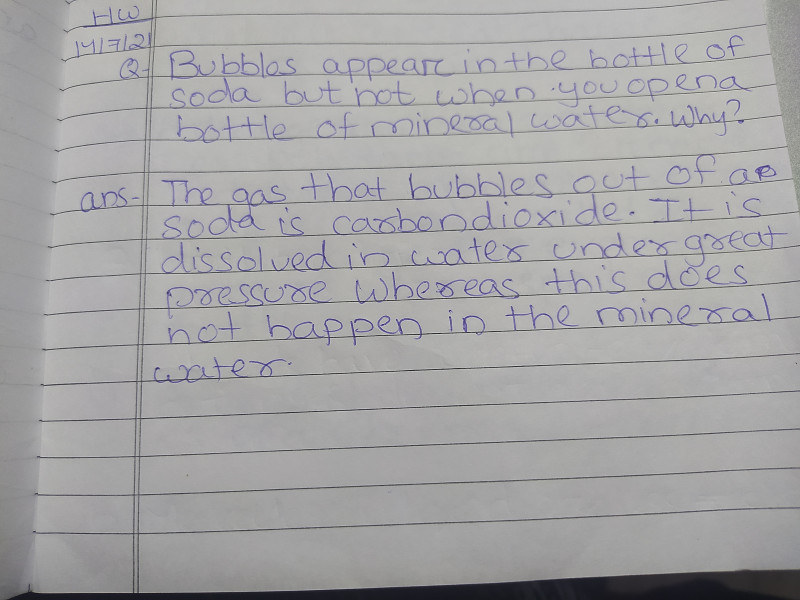 HW
14/7/21
Q- Bubbles appear in the bottle of
soda but not when you open a
bottle of mineral water. Why?
ans- The gas that bubbles out of a
soda is carbondioxide. It is
dissolved in water under great
pressure whereas this does
not happen in the mineral
water.